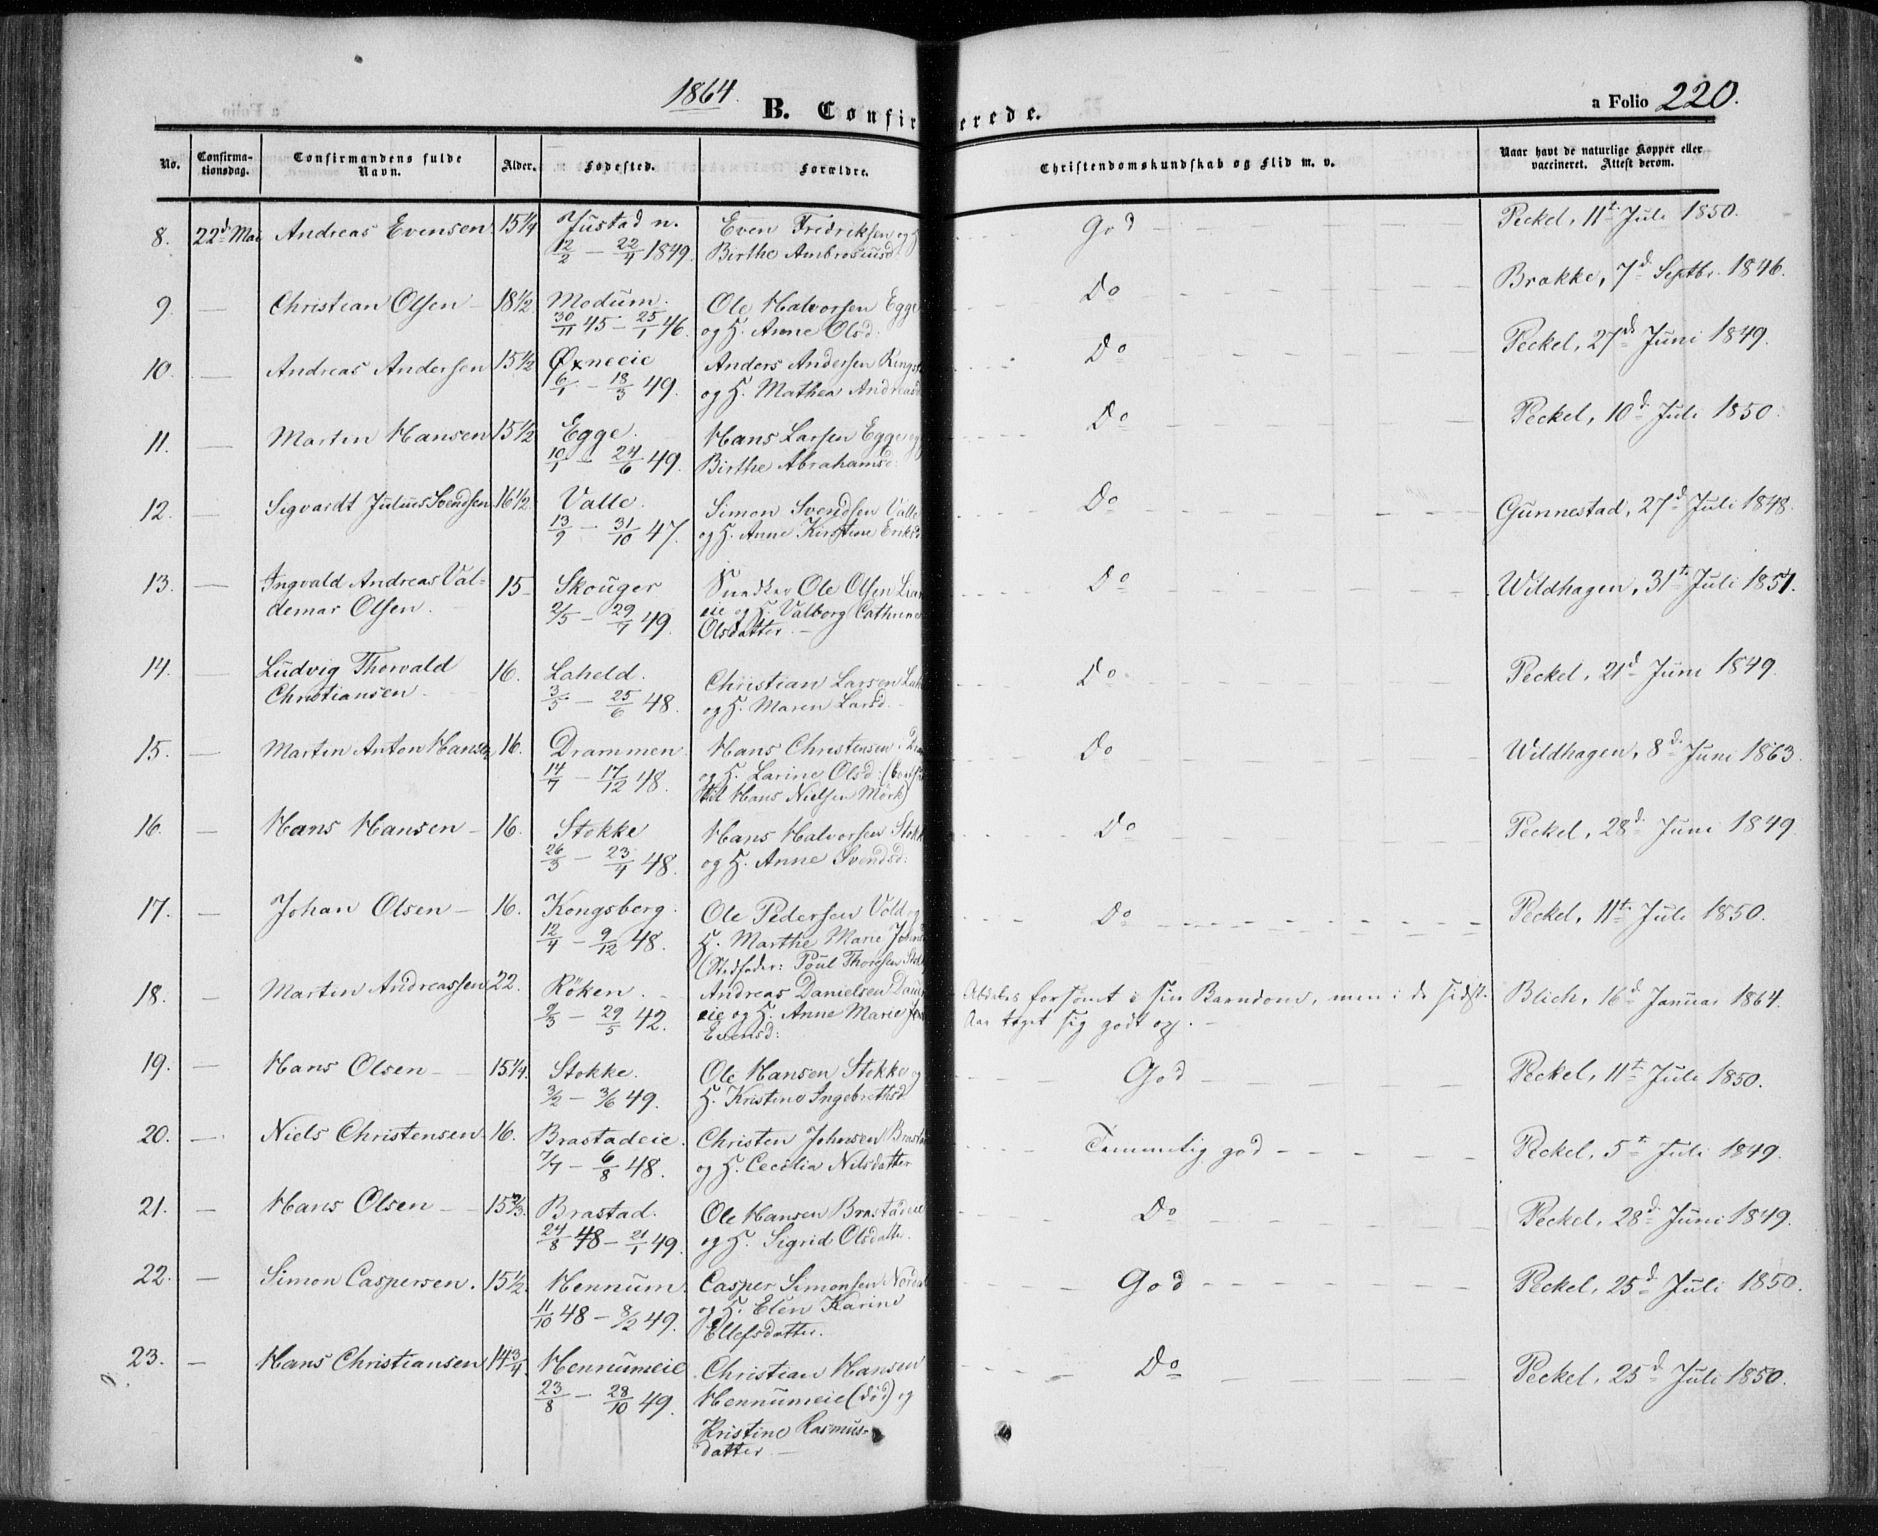 1864.
B. Confirmerede.
a Folio 220.
No. Confirmationsdag. Confirmandens fulde Navn. Alder. Fødested. Forældre. Christendomskundskab og Flid m. v. Naar havt de naturlige Kopper eller vaccineret. Attest derom.
8. 22d Mai Andreas Evensen 15 1/4 Justad n. Even Fredriksen og H. God Peckel, 11t Juli 1850.
12/2 - 22/4 1849. Birthe Ambrosiusd
9. — Christian Olsen — 18 1/2 Modum. Ole Halvorsen Egge Do Brakke, 7d Septbr. 1846.
30/11 45 - 25/1 46. og H. Anne Olsd:
10. — Andreas Andersen 15 1/2 Øxneeie Anders Andersen Do Peckel, 27d Juni 1849.
6/1 - 18/3 49. og H. Mathea Andreasd
11. — Martin Hansen 15 1/2 Egge. Hans Larsen Egge og Do Peckel, 10d Juli 1850.
10/1 - 24/6 49. Birthe Abrahamsd:
12. — Sigvardt Julius Svendsen 16 1/2 Valle. Simon Svendsen Valle Do Gunnestad, 27d Juli 1848.
13/9 - 31/10 47. og H. Anne Kirstine Eriksd
13. — Ingvald Andreas Val- 15 Skouger Ole Olsen Do Wildhagen, 31t Juli 1851.
demar Olsen. 2/5 - 29/7 49. eie og H. Valborg Cathrine
Olsdatter. —
14. — Ludvig Thorvald 16. Laheld. Christian Larsen Do Peckel, 21d Juni 1849.
Christiansen — 3/5 - 25/6 48. og H. Maren Larsd. —
15. — Martin Anton Hansen 16. Drammen Hans Christensen Do Wildhagen, 8d Juni 1863.
14/7 - 17/12 48. og H. Larine Olsd:
til Hans Nielsen Mörk)
16. — Hans Hansen — 16. Stokke Hans Halvorsen Stokke Do Peckel, 28d Juni 1849.
26/3 - 23/4 48. og H. Anne Svendsd:
17. — Johan Olsen — 16. Kongsberg. Ole Pedersen Vold og Do Peckel, 11t Juli 1850.
12/4 - 9/12 48. H. Marthe Marie
(Stedfader: Poul Thoresen
18. — Martin Andreassen 22. Röken. Andreas Danielsen forsömt i sin Barndom, men i de sidste Blich, 16d Januar 1864.
9/3 - 29/5 42. eie og H. Anne Marie Aar taget sig godt op. —
Evensd:
19. — Hans Olsen — 15 1/4. Stokke. Ole Hansen Stokke og God Peckel, 11t Juli 1850.
3/2 - 3/6 49. H. Kristine Ingebrethsd
20. — Niels Christensen 16. Brastadeie. Christen Johnsen Temmelig god Peckel, 5t Juli 1849.
7/7 - 6/8 48. og H. Cecilia Nilsdatter
21. — Hans Olsen — 15 2/3. Brastad. Ole Hansen Brastadeie Do Peckel, 28d Juni 1849.
24/8 48 - 21/1 49. og H. Sigrid Olsdatter.
22. — Simon Caspersen. 15 1/2. Hennum. Casper Simonsen God Peckel, 25d Juli 1850.
11/10 48 - 8/2 49. og H. Elen Karine
Ellefsdatter.
23. — Hans Christiansen 14 3/4 Hennumeie Christian Hansen Do Peckel, 25d Juli 1850.
23/8 - 28/10 49. Hennumeie (död) og
Kristine Rasmus-
datter —